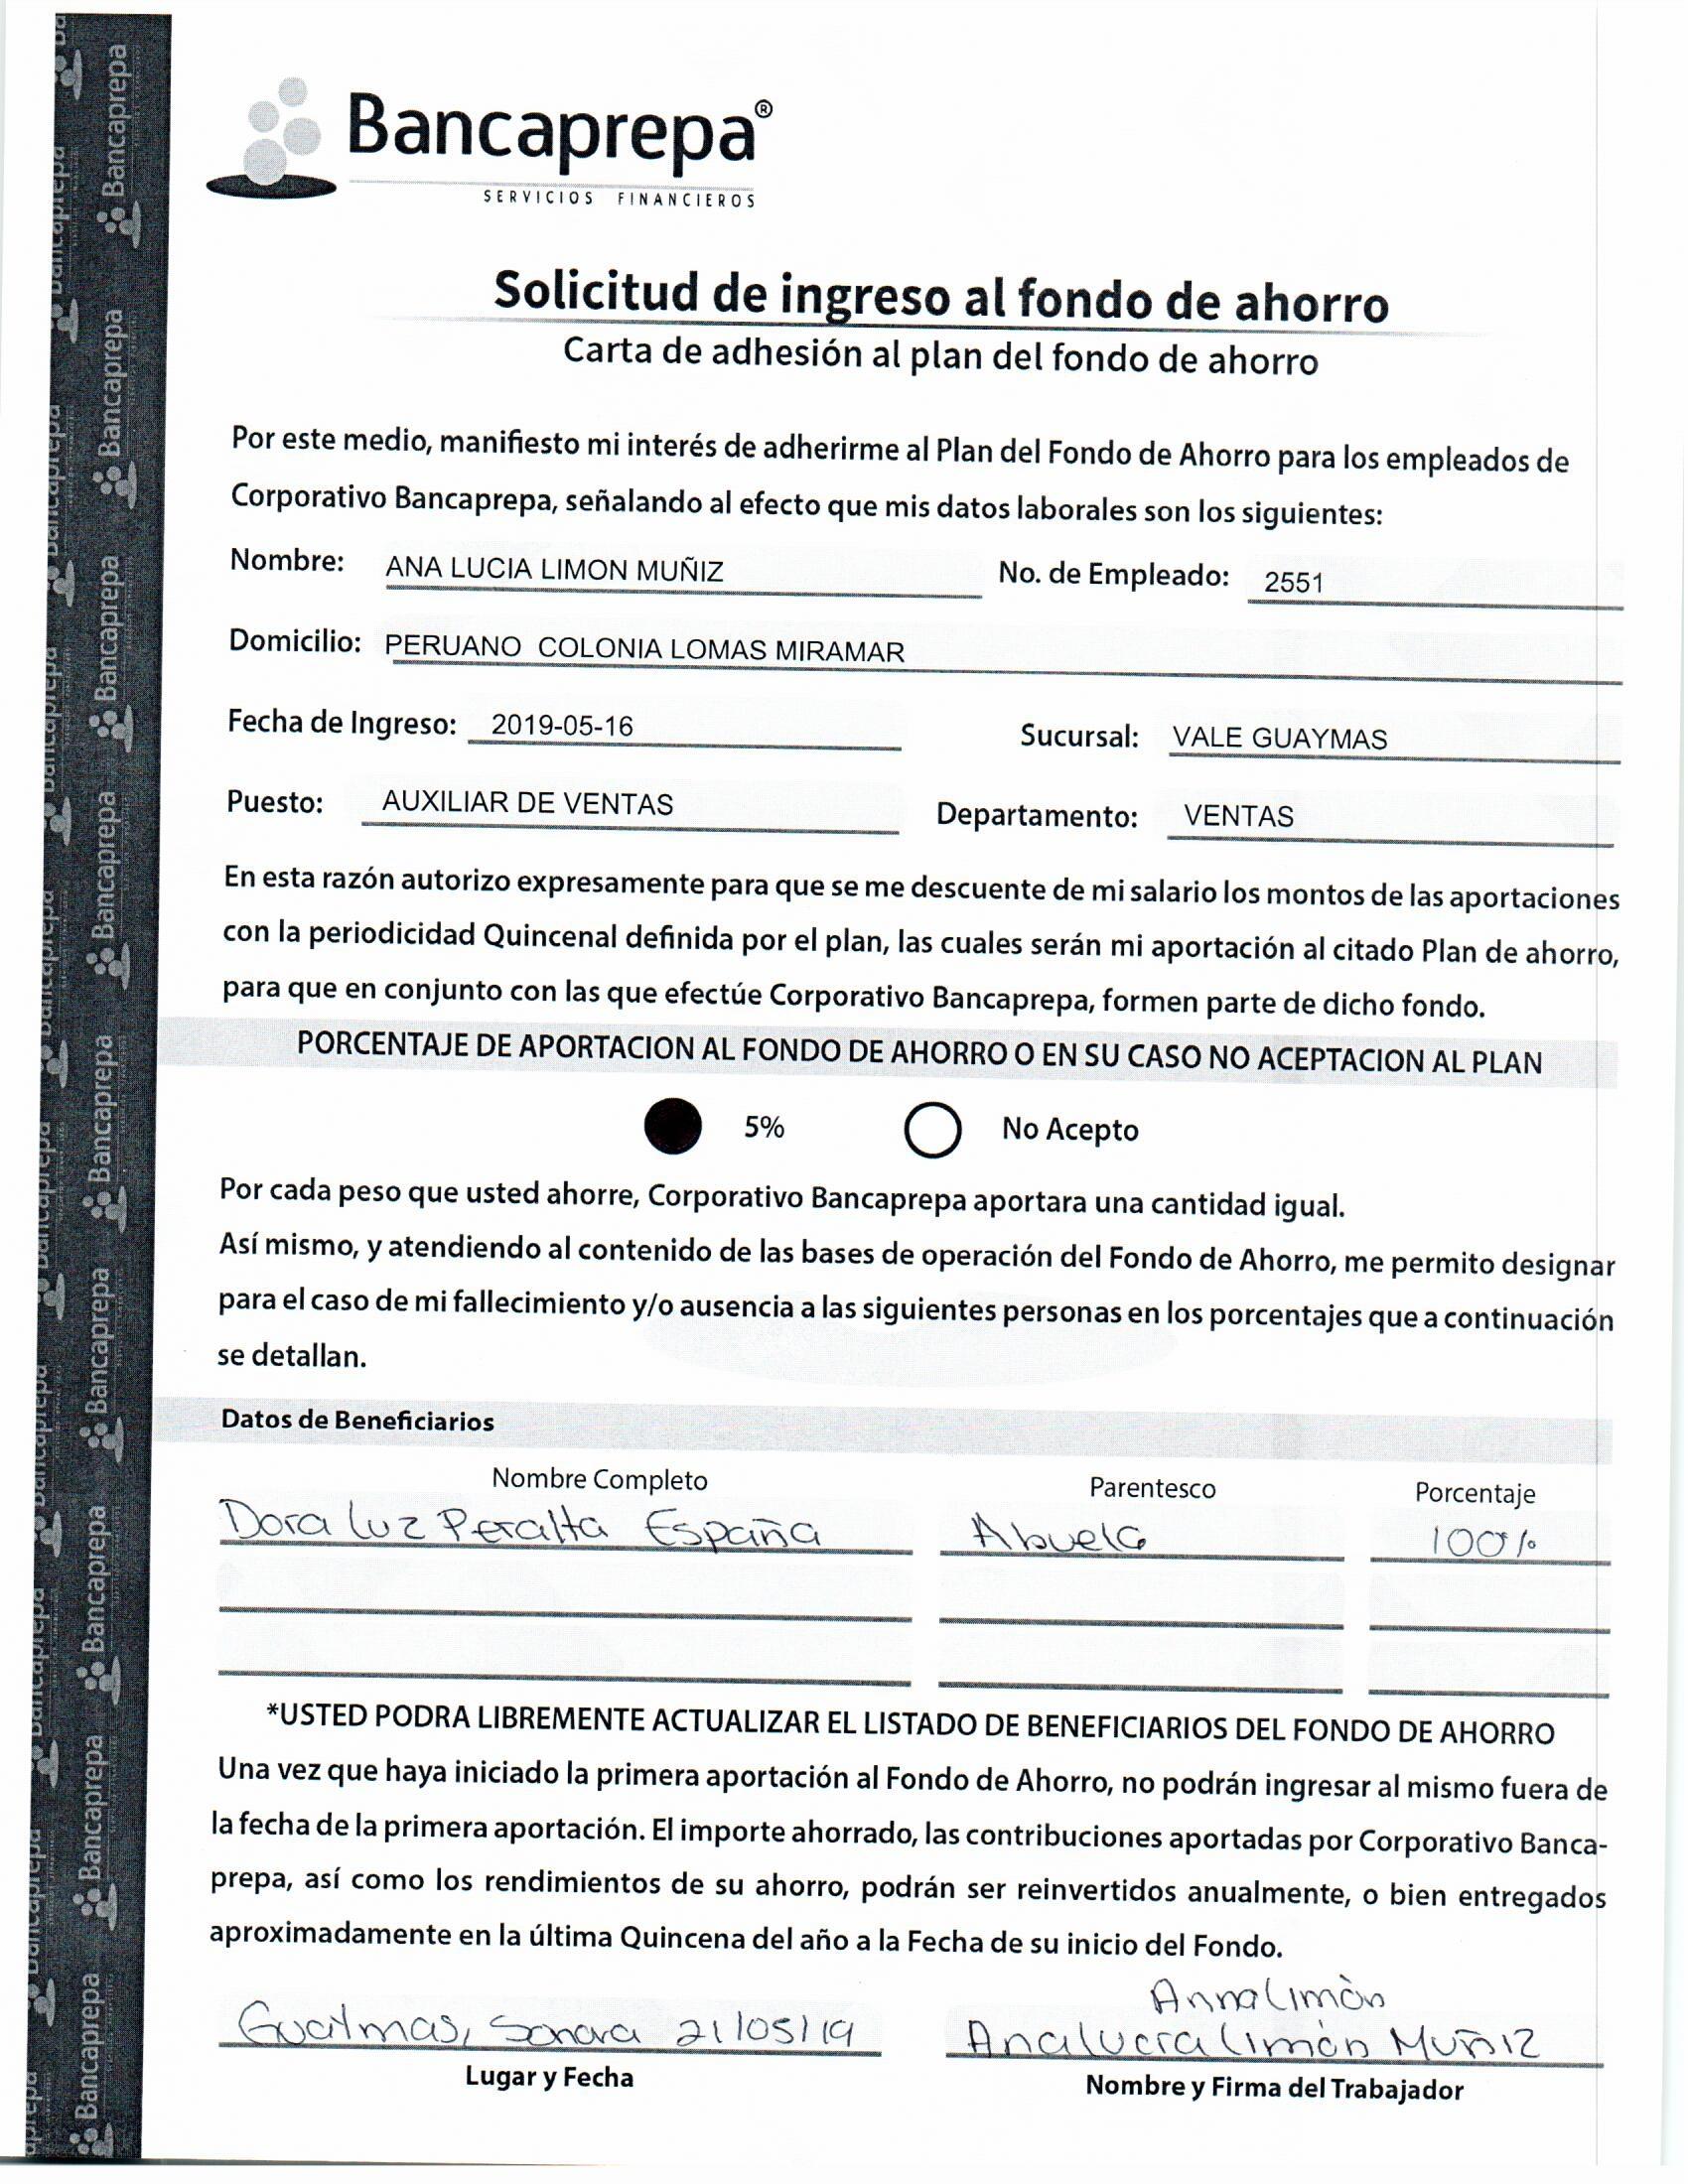 Bancaprepa®
SERVICIOS FINANCIEROS
Solicitud de ingreso al fondo de ahorro
Carta de adhesión al plan del fondo de ahorro
Por este medio, manifiesto mi interés de adherirme al Plan del Fondo de Ahorro para los empleados de
Corporativo Bancaprepa, señalando al efecto que mis datos laborales son los siguientes:
Nombre: ANA LUCIA LIMON MUÑIZ No. de Empleado: 2551
Domicilio: PERUANO COLONIA LOMAS MIRAMAR
Fecha de Ingreso: 2019-05-16 Sucursal: VALE GUAYMAS
Puesto: AUXILIAR DE VENTAS Departamento: VENTAS
En esta razón autorizo expresamente para que se me descuente de mi salario los montos de las aportaciones
con la periodicidad Quincenal definida por el plan, las cuales serán mi aportación al citado Plan de ahorro,
para que en conjunto con las que efectúe Corporativo Bancaprepa, formen parte de dicho fondo.
PORCENTAJE DE APORTACION AL FONDO DE AHORRO O EN SU CASO NO ACEPTACION AL PLAN
5% No Acepto
Por cada peso que usted ahorre, Corporativo Bancaprepa aportara una cantidad igual.
Así mismo, y atendiendo al contenido de las bases de operación del Fondo de Ahorro, me permito designar
para el caso de mi fallecimiento y/o ausencia a las siguientes personas en los porcentajes que a continuación
se detallan.
Datos de Beneficiarios
Nombre Completo Parentesco Porcentaje
Dora Luz Peralta España Abuela 100%
*USTED PODRA LIBREMENTE ACTUALIZAR EL LISTADO DE BENEFICIARIOS DEL FONDO DE AHORRO
Una vez que haya iniciado la primera aportación al Fondo de Ahorro, no podrán ingresar al mismo fuera de
la fecha de la primera aportación. El importe ahorrado, las contribuciones aportadas por Corporativo Banca-
prepa, así como los rendimientos de su ahorro, podrán ser reinvertidos anualmente, o bien entregados
aproximadamente en la última Quincena del año a la Fecha de su inicio del Fondo.
Anna Limón
Guaymas, Sonora 21/05/19 Ana Lucia Limón Muñiz
Lugar y Fecha Nombre y Firma del Trabajador